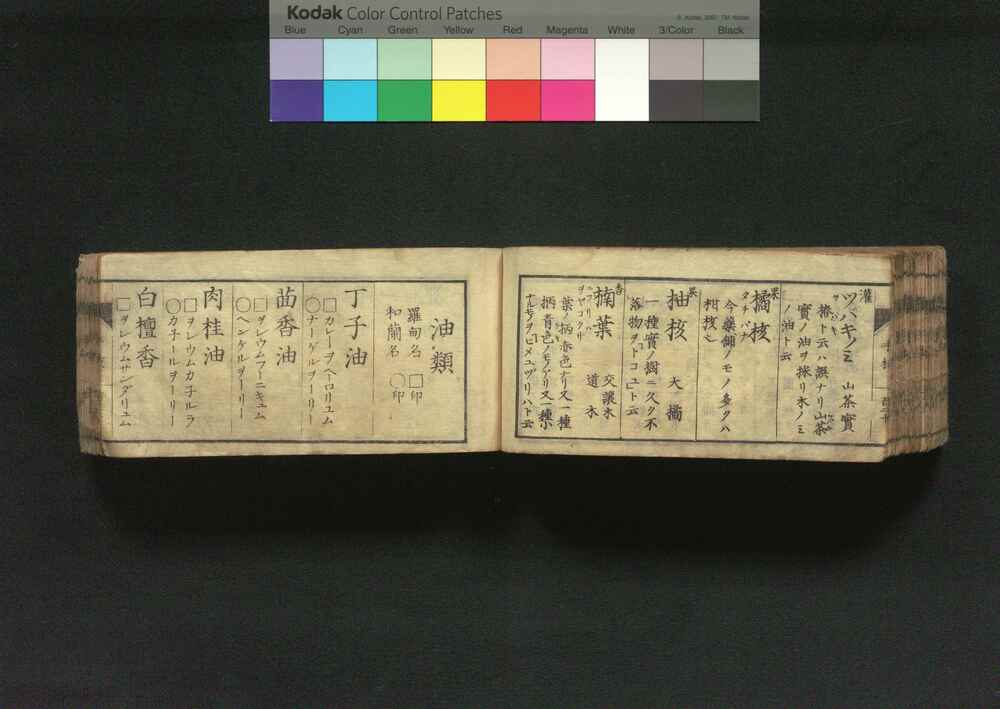 Kodak Color Control Patches
© Kodak, 2007 TM: Kodak
Blue Cyan Green Yellow Red Magenta White 3/Color Black
灌
ツバキノミ 山茶實
椿ト云ハ誤ナリ山茶
實ノ油ヲ採リ木ノミ
ノ油ト云
果
橘核
タチバナ
今藥舗ノモノ多クハ
柑核也
果
柚核 大橘
一種實ノ樹ニ久ク不
落物ヲトコユト云
香
楠葉 交讓木
道衣
葉ノ柄赤色ナリ又一種
柄青色ノモノアリ又一種小
ナルモノヲヒメユヅリハト云
油類
羅甸名 □印
和蘭名 ○印
丁子油
□カレーヲヘロリユム
○ナーゲルヲーリー
茴香油
□ヲレウムフーニキュム
○ヘンケルヲーリー
肉桂油
□ヲレウムカナルラ
○カナールヲーリー
白檀香
□ヲレウムサンダリュム